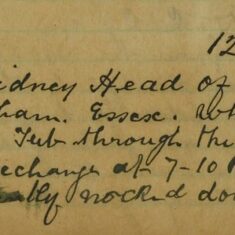 12
idney Head of
ham. Essex. w
Tub through the
echange at 7-10
lly nock'd do